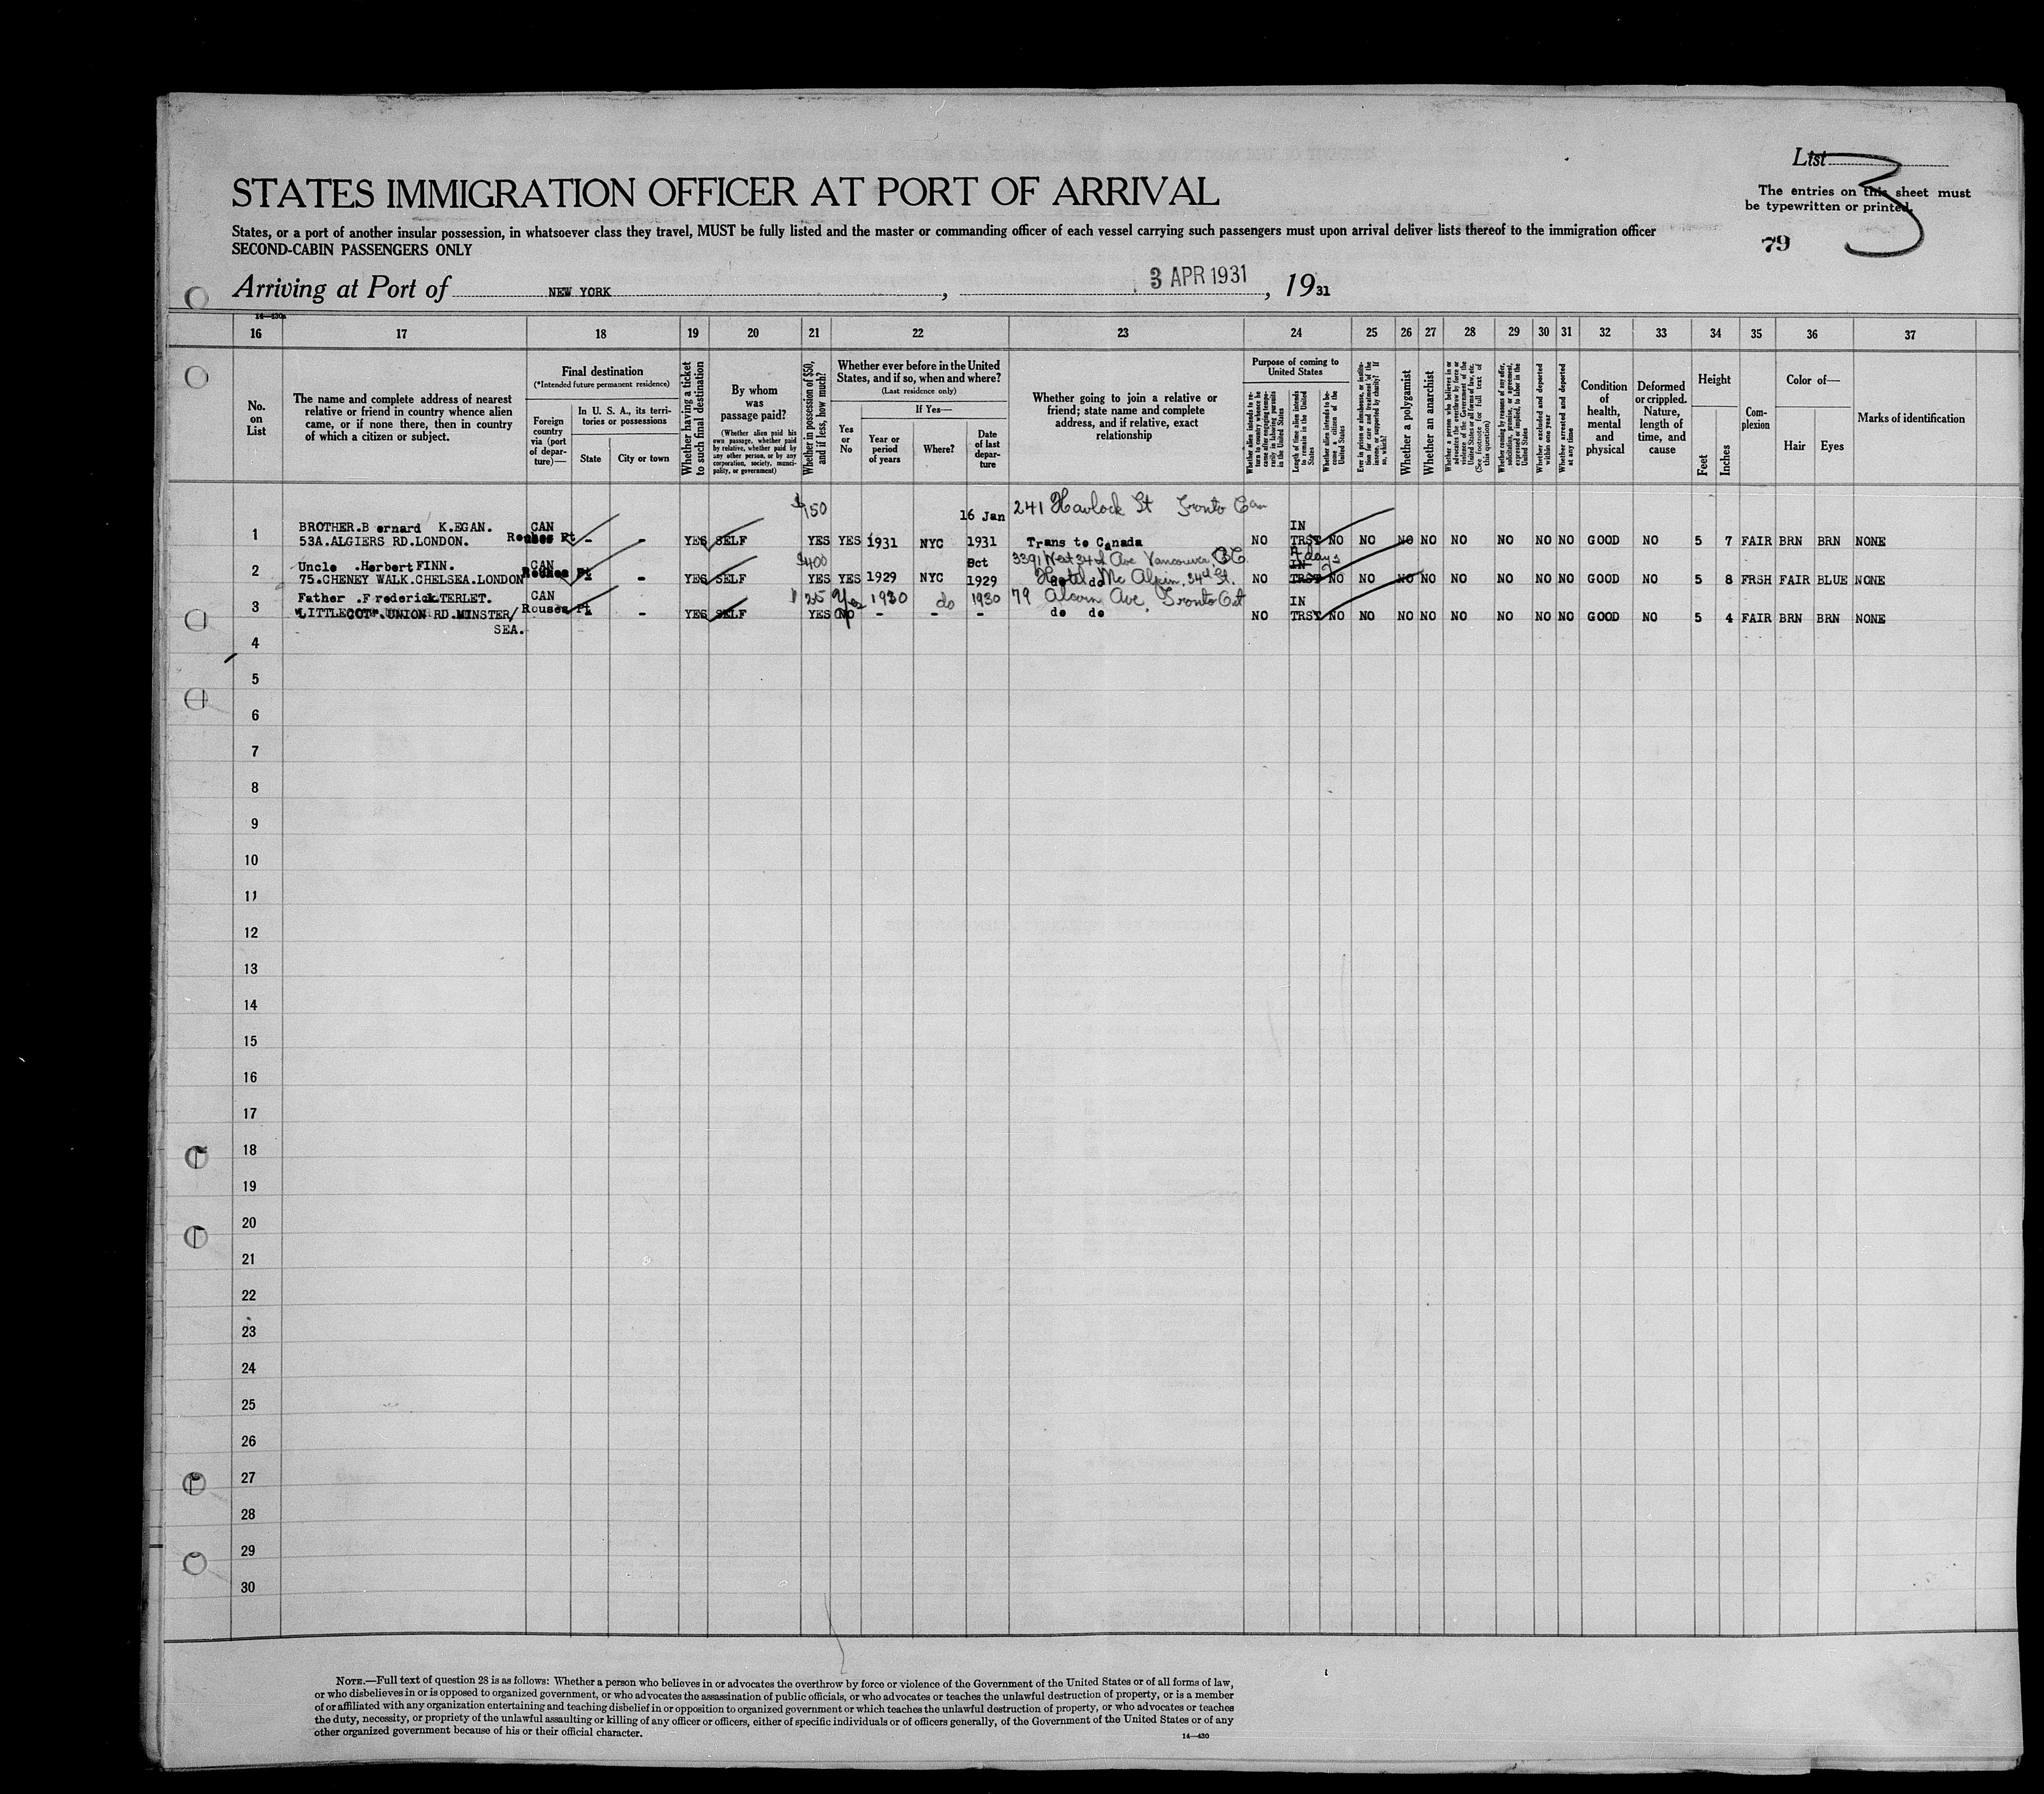 List 3
STATES IMMIGRATION OFFICER AT PORT OF ARRIVAL
The entries on this sheet must
be typewritten or printed.
States, or a port of another insular possession, in whatsoever class they travel, MUST be fully listed and the master or commanding officer of each vessel carrying such passengers must upon arrival deliver lists thereof to the immigration officer
SECOND-CABIN PASSENGERS ONLY
79
Arriving at Port of NEW YORK, 3 APR 1931, 1931
14—430a
16 17 18 19 20 21 22 23 24 25 26 27 28 29 30 31 32 33 34 35 36 37
No. on List
The name and complete address of nearest relative or friend in country whence alien came, or if none there, then in country of which a citizen or subject.
Final destination
(*Intended future permanent residence)
Foreign country via (port of departure)—
In U. S. A., its territories or possessions
State
City or town
Whether having a ticket to such final destination
By whom was passage paid?
(Whether alien paid his own passage, whether paid by relative, whether paid by any other person, or by any corporation, society, municipality, or government)
Whether in possession of $50, and if less, how much?
Whether ever before in the United States, and if so, when and where?
(Last residence only)
Yes or No
If Yes—
Year or period of years
Where?
Date of last departure
Whether going to join a relative or friend; state name and complete address, and if relative, exact relationship
Purpose of coming to United States
Whether alien intends to return to country whence he came after engaging temporarily in laboring pursuits in the United States
Length of time alien intends to remain in the United States
Whether alien intends to become a citizen of the United States
Ever in prison or almshouse, or institution for care and treatment of the insane, or supported by charity? If so, which?
Whether a polygamist
Whether an anarchist
Whether a person who believes in or advocates the overthrow by force or violence of the Government of the United States or all forms of law, etc. (See footnote for full text of this question)
Whether coming by reason of any offer, solicitation, promise, or agreement, expressed or implied, to labor in the United States
Whether excluded and deported within one year
Whether arrested and deported at any time
Condition of health, mental and physical
Deformed or crippled. Nature, length of time, and cause
Height
Feet
Inches
Complexion
Color of—
Hair
Eyes
Marks of identification
$150 16 Jan 241 Havlock St Tronto Can
BROTHER.B ernard K.EGAN. CAN IN
1 53A.ALGIERS RD.LONDON. Rouses Pt - - YES SELF YES YES 1931 NYC 1931 Trans to Canada NO TRST NO NO NO NO NO NO NO NO GOOD NO 5 7 FAIR BRN BRN NONE
Uncle .Herbert FINN. CAN $400 Oct 3391 West 34d Ave Vancouver, BC. IN days
2 75.CHENEY WALK.CHELSEA.LONDON Rouses Pt - YES SELF YES YES 1929 NYC 1929 do do Hotel Mc Alpin, 34d St. NO TRST NO NO NO NO NO NO NO NO GOOD NO 5 8 FRSH FAIR BLUE NONE
Father .F rederick TERLET. CAN $25 Yes 1930 do 1930 79 Alcorn Ave, Tronto Ont IN
3 "LITTLECOT".UNION RD.MINSTER/ Rouses Pt - YES SELF YES NO - - - do do NO TRST NO NO NO NO NO NO NO NO GOOD NO 5 4 FAIR BRN BRN NONE
SEA.
4
5
6
7
8
9
10
11
12
13
14
15
16
17
18
19
20
21
22
23
24
25
26
27
28
29
30
NOTE.—Full text of question 28 is as follows: Whether a person who believes in or advocates the overthrow by force or violence of the Government of the United States or of all forms of law,
or who disbelieves in or is opposed to organized government, or who advocates the assassination of public officials, or who advocates or teaches the unlawful destruction of property, or is a member
of or affiliated with any organization entertaining and teaching disbelief in or opposition to organized government or which teaches the unlawful destruction of property, or who advocates or teaches
the duty, necessity, or propriety of the unlawful assaulting or killing of any officer or officers, either of specific individuals or of officers generally, of the Government of the United States or of any
other organized government because of his or their official character.
14—430